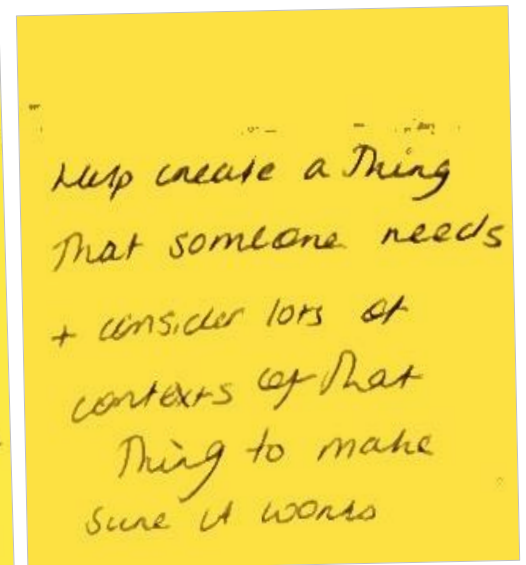 Help create a Thing
That someone needs
+ consider lots of
contexts of That
Thing to make
sure it works